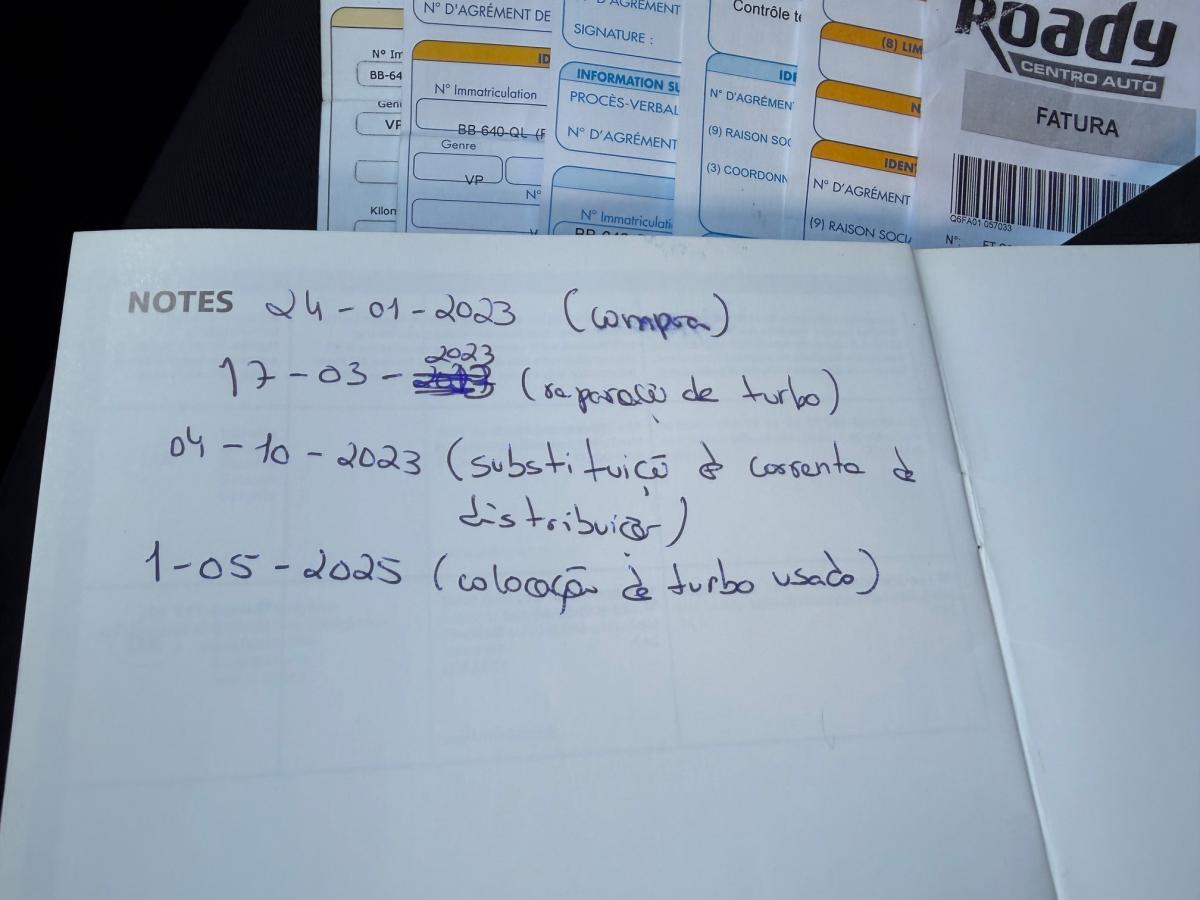 N° D'AGRÉMENT DE
D'AGRÉMENT
SIGNATURE :
Contrôle te
(8) LIM
Roady
CENTRO AUTO
FATURA
Q6FA01 057033
N°:
N° Im
BB-64
Genr
VP
Kilon
ID
N° Immatriculation
BB-640-QL (F
Genre
VP
N°
INFORMATION SU
PROCÈS-VERBAL
N° D'AGRÉMENT
N° Immatriculati
IDE
N° D'AGRÉMEN
(9) RAISON SOC
(3) COORDONN
N
IDENT
N° D'AGRÉMENT
(9) RAISON SOCIA
NOTES 24-01-2023 (compra)
2023
17-03- (reparação de turbo)
04-10-2023 (substituição de corrente de
distribuição)
1-05-2025 (colocação de turbo usado)